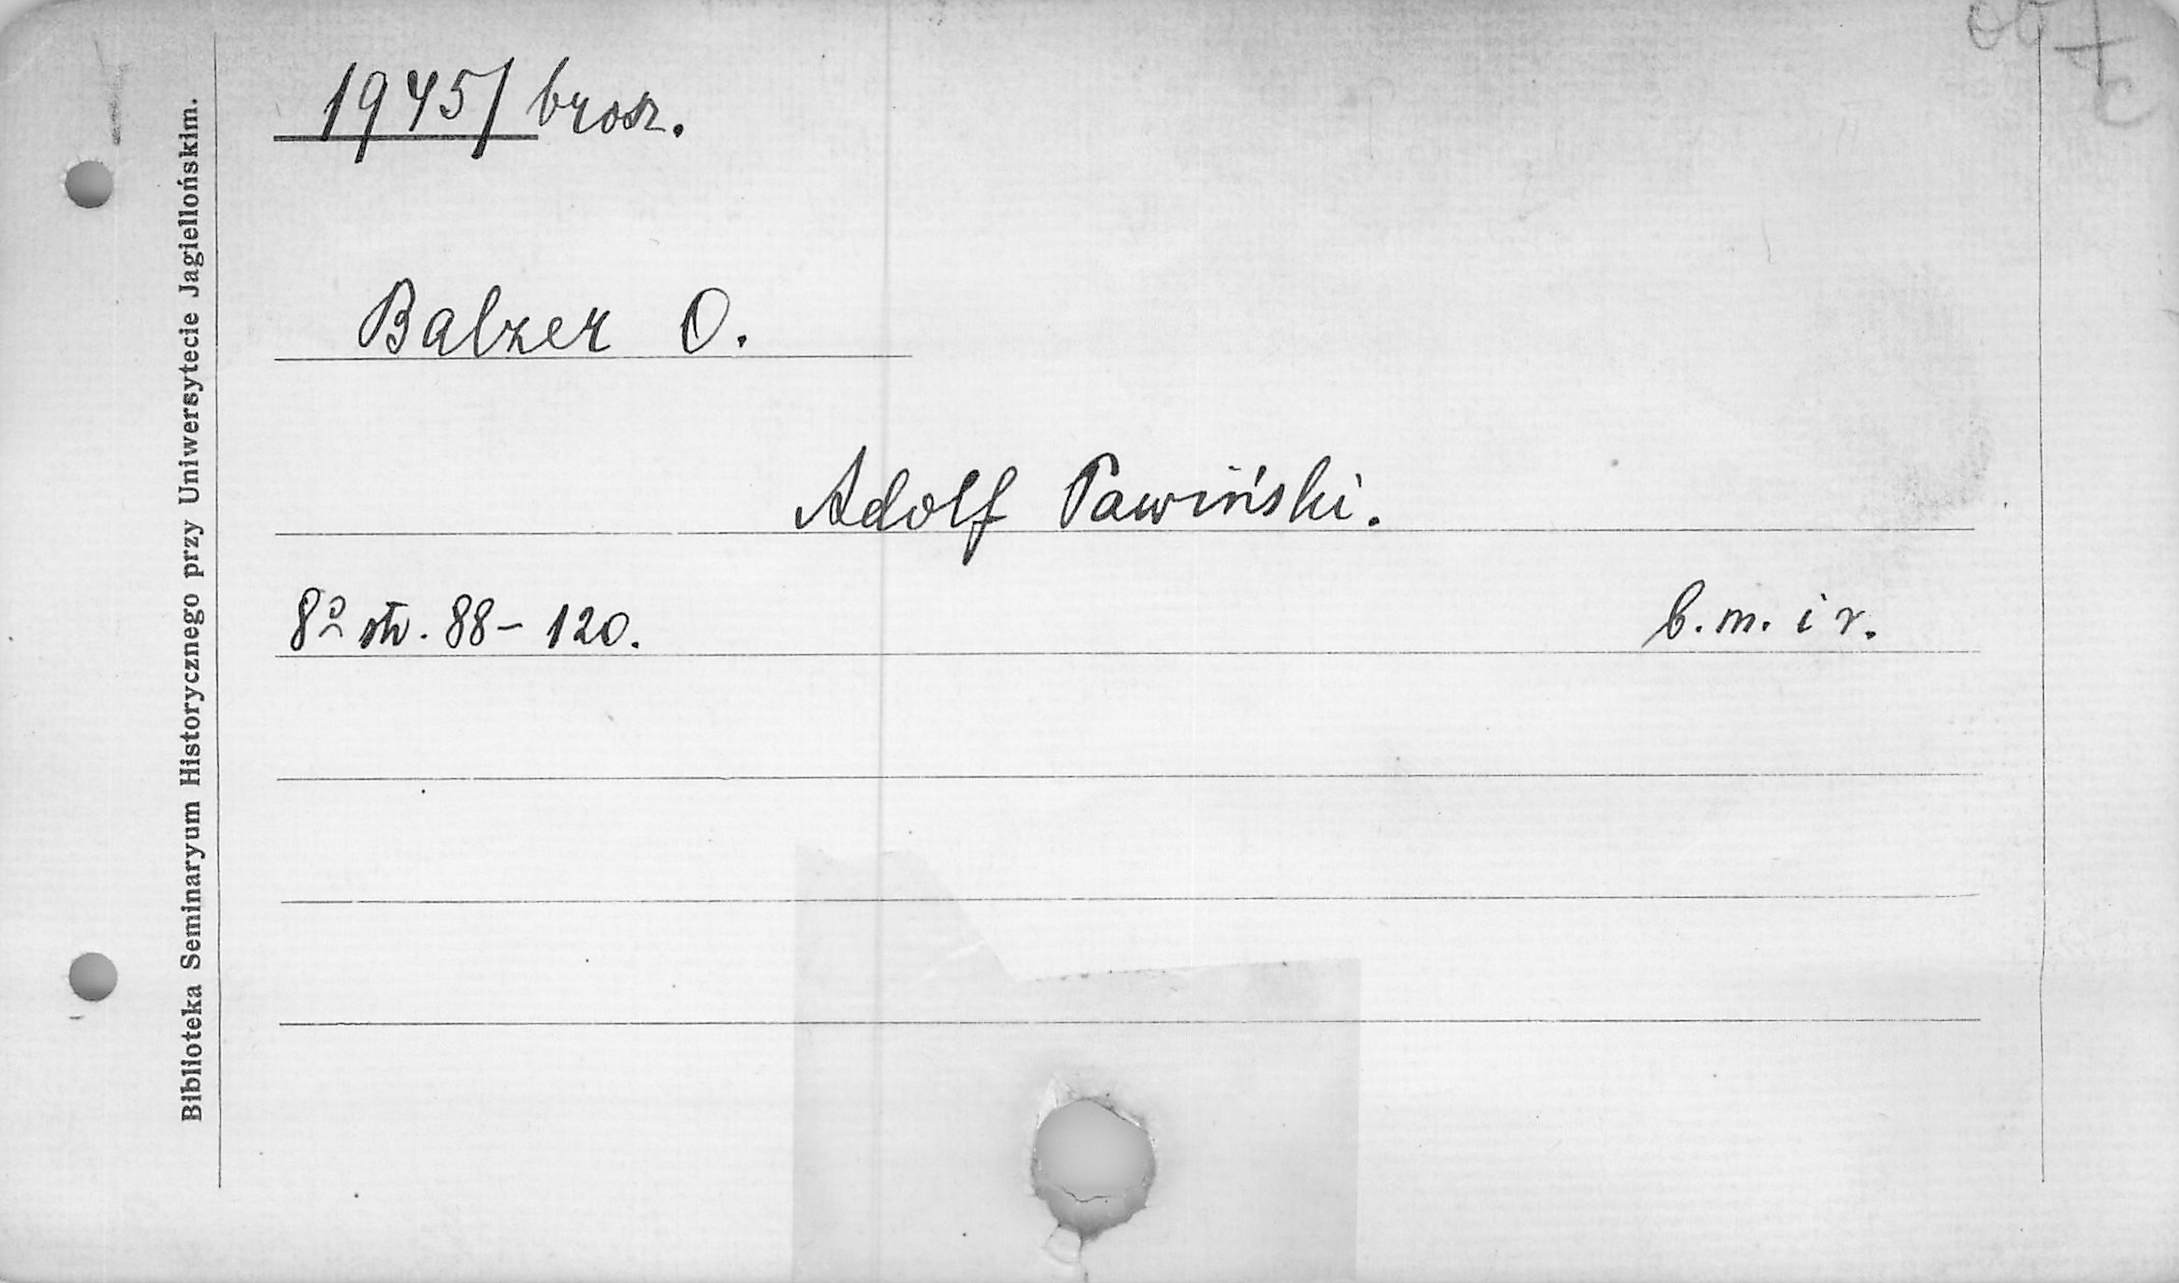 1945/ brosz.
Balzer O.
Adolf Pawiński.
8º str. 88–120. b. m. i r.
Biblioteka Seminaryum Historycznego przy Uniwersytecie Jagiellońskim.